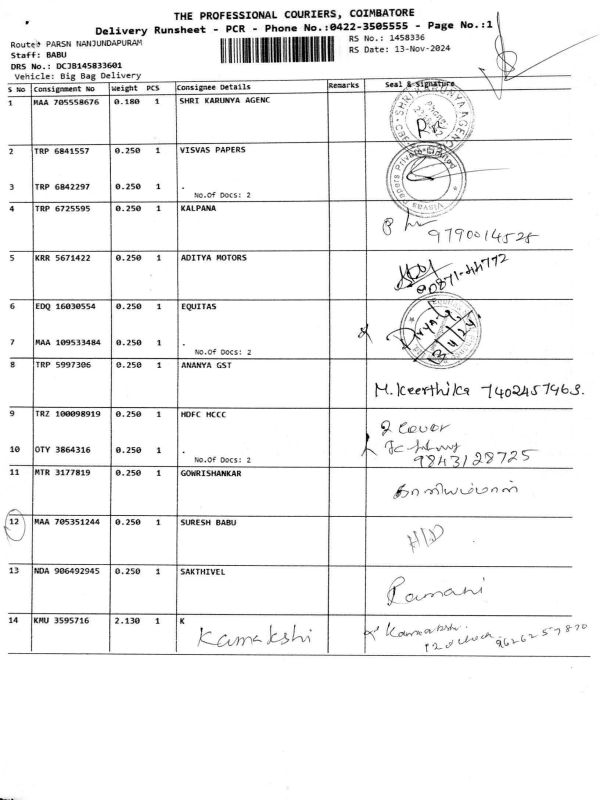 THE PROFESSIONAL COURIERS, COIMBATORE
Delivery Runsheet - PCR - Phone No.:0422-3505555 - Page No.:1
Route: PARSN NANJUNDAPURAM
RS No.: 1458336
Staff: BABU
RS Date: 13-Nov-2024
DRS No.: DCJB145833601
Vehicle: Big Bag Delivery
S No Consignment No Weight PCS Consignee Details Remarks Seal & Signature
1 MAA 705558676 0.180 1 SHRI KARUNYA AGENC
2 TRP 6841557 0.250 1 VISVAS PAPERS
3 TRP 6842297 0.250 1 .
No.Of Docs: 2
4 TRP 6725595 0.250 1 KALPANA
9790014525
5 KRR 5671422 0.250 1 ADITYA MOTORS
90871-44772
6 EDQ 16030554 0.250 1 EQUITAS
7 MAA 109533484 1 0.250 1 .
No.Of Docs: 2
8 TRP 5997306 0.250 1 ANANYA GST
M. Keerthika 7402457963.
9 TRZ 100098919 0.250 1 HDFC HCCC
2 Cover
10 OTY 3864316 0.250 1 .
9843128725
No.Of Docs: 2
11 MTR 3177819 0.250 1 GOWRISHANKAR
காளியம்மாள்
12 MAA 705351244 0.250 1 SURESH BABU
H/D
13 NDA 906492945 0.250 1 SAKTHIVEL
Ramani
14 KMU 3595716 2.130 1 K
Kamakshi
12 o'clock 9626257870